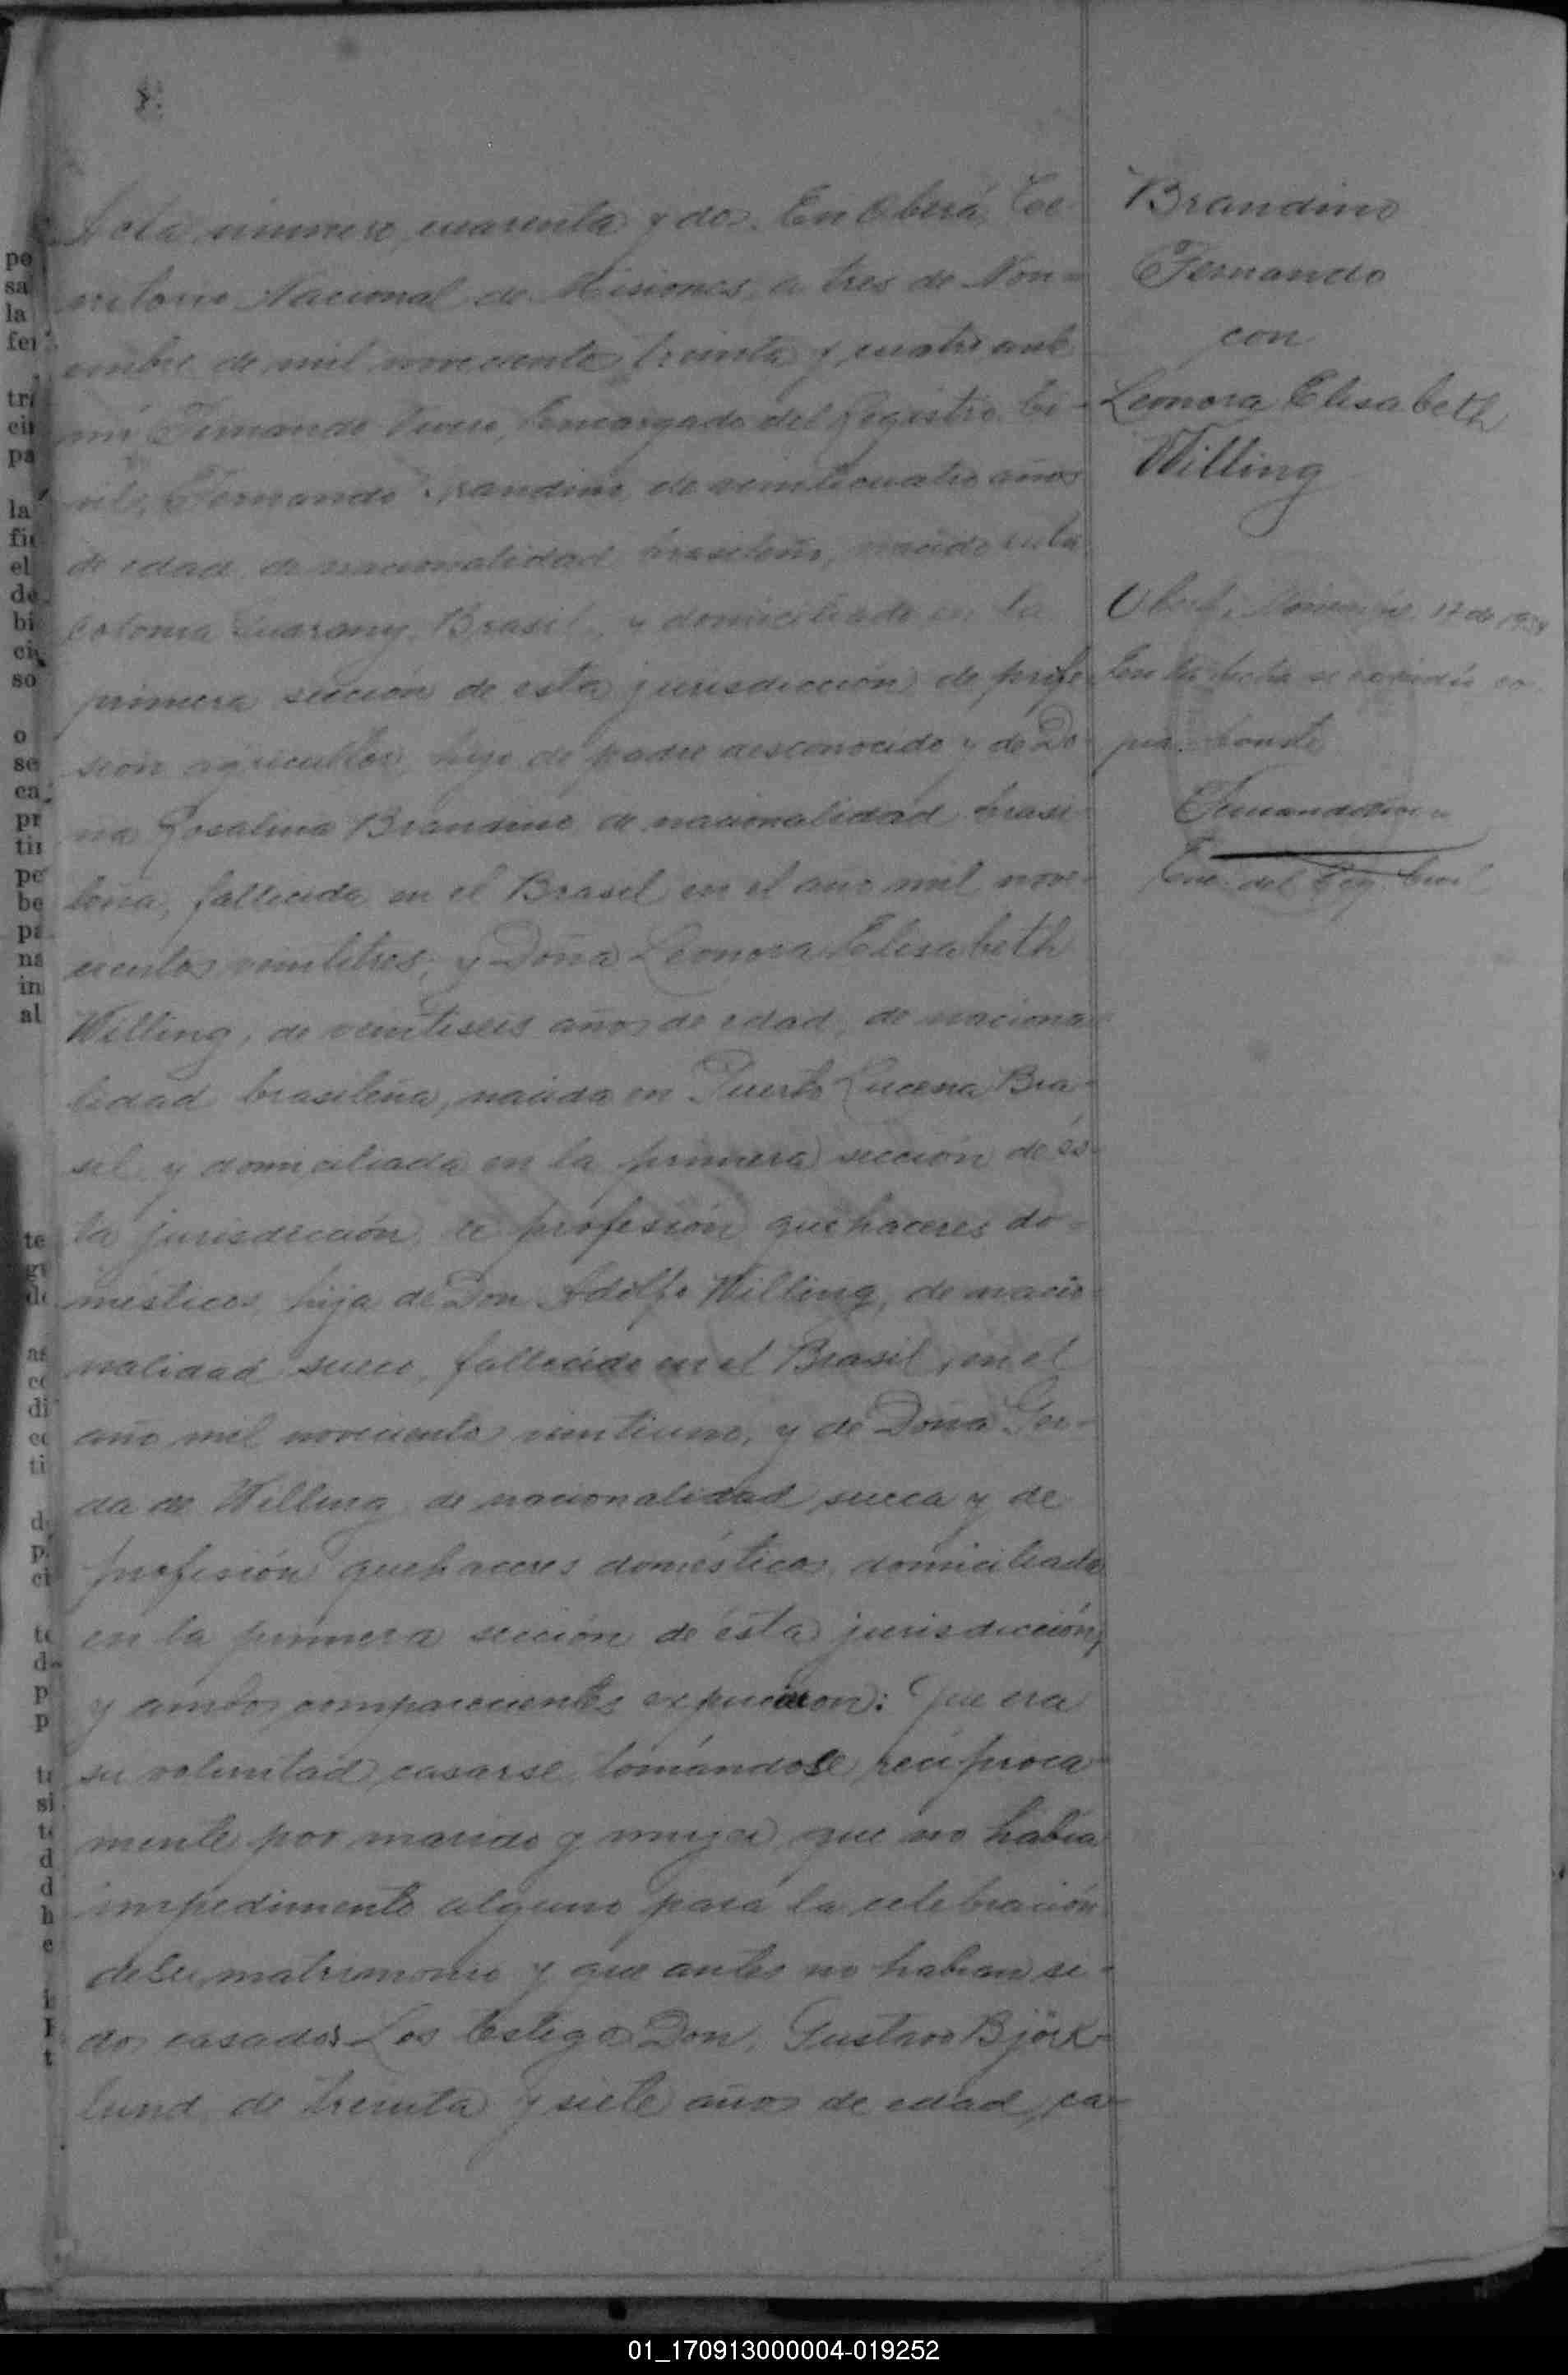 Acta número cuarenta y dos. En Oberá, Te-
rritorio Nacional de Misiones, a tres de Nov=
iembre de mil novecientos treinta y cuatro ante
mi Fernando Encargado del Registro Ci-
vil, Fernando Brandino de veinticuatro años
de edad, de nacionalidad brasileño, nacido en la
colonia Guarany, Brasil, y domiciliado en la
primera sección de esta jurisdicción, de profe-
sión agricultor, hijo de padre desconocido y de Do-
ña Rosalina Brandino de nacionalidad brasi-
leña, fallecida en el Brasil en el año mil nove-
cientos veintitres; y Doña Leonora Elisabeth
Willing, de veintiseis años de edad, de naciona-
lidad brasileña, nacida en Puerto Lucena Bra-
sil y domiciliada en la primera sección de és-
ta jurisdicción, de profesión quehaceres do-
mésticos, hija de Don Adolfo Willing, de nacio-
nalidad sueco, fallecido en el Brasil, en el
año mil novecientos veintiuno, y de Doña Ger-
da de Willing de nacionalidad sueca y de
profesión quehaceres domésticos, domiciliada
en la primera sección de ésta jurisdicción,
y ambos comparecientes expusieron: Que era
su voluntad casarse, tomándose recíproca-
mente por marido y mujer, que no había
impedimento alguno para la celebración
de su matrimonio y que antes no habian si-
do casados. Los testigos Don, Gustavo Björk-
lund de treinta y siete años de edad, ca-
Brandino
Fernando
con
Leonora Elisabeth
Willing
Oberá, Noviembre 17 de 1934
En la fecha se expidió co-
pia. Conste
Enc. del Reg. Civil
01_170913000004-019252